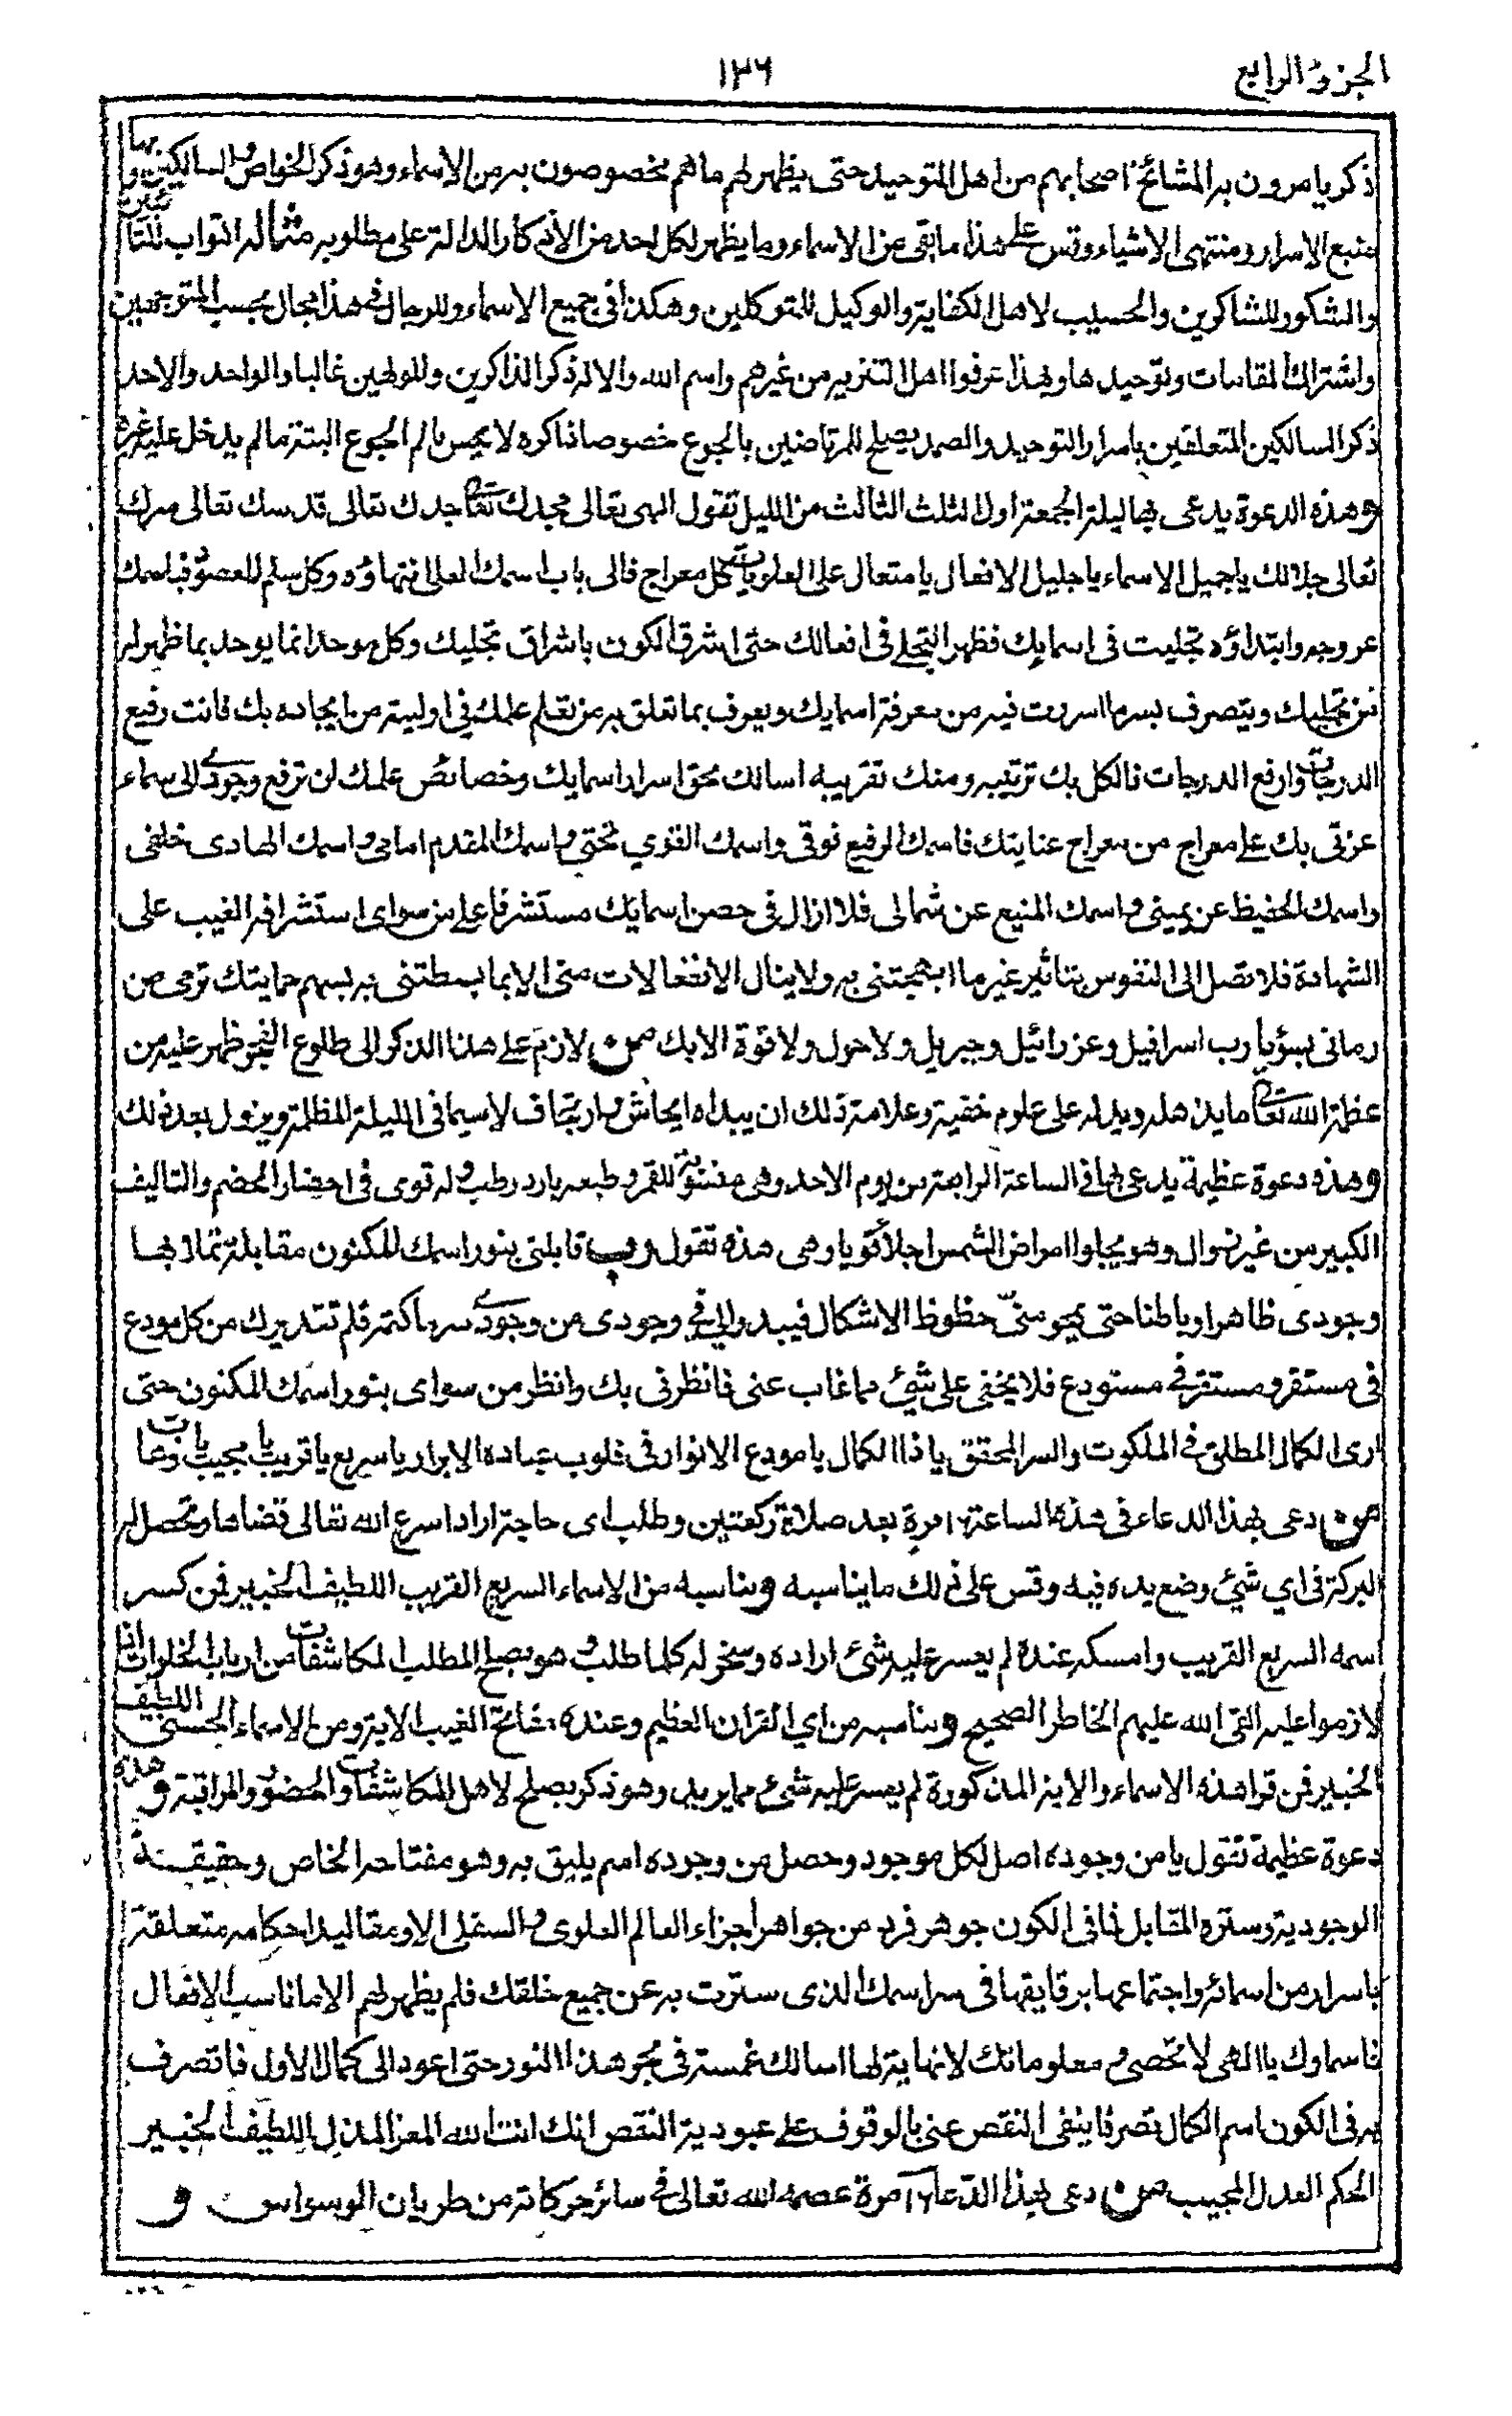 الجزؤ الرابع
١٣٦
ذكر يامرون به المشائخ اصحابهم من اهل التوحيد حتى يظهر لهم ما هم مخصوصون به من الاسماء وهو ذكر الخواص والسالكين وبها
منبع الاسرار ومنتهى الاشياء وقس على هذا ما بقى من الاسماء وما يظهر لكل احد من الأذكار الدالة على مطلوبه مثاله التواب للتائبين
والشكور للشاكرين والحسيب لاهل الكفاية والوكيل للمتوكلين وهكذا فى جميع الاسماء وللرجال فى هذا مجال بحسب المتوجهين
واشتراك المقامات وتوحيدها ولهذا عرفوا اهل التنزيه من غيرهم واسم الله والاله ذكر الذاكرين وللولهين غالبا والواحد والاحد
ذكر السالكين المتعلقين باسرار التوحيد والصمد يصلح للمرتاضين بالجوع خصوصا ذاكره لا يحس بالم الجوع البتة ما لم يدخل عليه غيره
وهذه الدعوة يدعى بها ليلة الجمعة اول الثلث الثالث من الليل تقول الهى تعالى مجدك تعالى جدك تعالى قدسك تعالى سرك
تعالى جلالك يا جميل الاسماء يا جليل الافعال يا متعال على العلويات كل معراج فالى باب اسمك العلى انتهاؤه وكل سلم للعصو فباسمك
عروجه وابتداؤه تجليت فى اسمايك فظهر التجلى فى افعالك حتى اشرق الكون باشراق تجليك وكل موحد انما يوحد بما ظهر له
من تجليك ويتصرف بسر ما اسررت فيه من معرفة اسمايك ويعرف بما تعلق به من تعلم علمك فى اولية من ايجاده بك فانت رفيع
الدرجات وارفع الدرجات فالكل بك ترتيبه ومنك تقريبه اسالك بحق اسرار اسمايك وخصائص علمك لن ترفع وجودى الى سماء
عزتى بك على معراج من معراج عنايتك فاسمك الرفيع فوقى واسمك القوي تحتى واسمك المقدم امامى واسمك الهادى خلفى
واسمك الحفيظ عن يمينى واسمك المنيع عن شمالى فلا ازال فى حصن اسمايك مستشرفا على من سواى استشراف الغيب على
الشهادة فلا تصل الى النفوس بتاثير غير ما ابهجتنى به ولا ينال الانفعالات منى الا بما بسطتنى به بسهم حمايتك ترمى من
رمانى بسؤ يا رب اسرافيل وعزرائيل وجبريل ولا حول ولا قوة الا بك من لازم على هذا الذكر الى طلوع الفجر ظهر عليه من
عظمة الله تعالى ما يذهله ويدله على علوم خفية وعلامة ذلك ان يبداه ايحاش وارتجاف لا سيما فى الليلة المظلمة ويزول بعد ذلك
وهذه دعوة عظيمة يدعى بها فى الساعة الرابعة من يوم الاحد وهى منسوبة للقمر وطبعه بارد رطب وله قوى فى احضار الخصم والتاليف
الكبير من غير زوال وهو يجلوا امراض الشمس اجلاً قويا وهى هذه تقول رب قابلنى بنور اسمك المكنون مقابلة تملأ بها
وجودى ظاهرا وباطنا حتى يمحو منى حظوظ الاشكال فيبدو الى فى وجودى من وجودى سر ما كتمه قلم تقديرك من كل مودع
فى مستقر ومستقر فى مستودع فلا يخفى على شيئ مما غاب عنى فانظرنى بك وانظر من سواى بنور اسمك المكنون حتى
ارى الكمال المطلق فى الملكوت والسر المحقق يا ذا الكمال يا مودع الانوار فى قلوب عباده الابرار يا سريع يا قريب يا مجيب يا وهاب
من دعى بهذا الدعاء فى هذه الساعة ١٦ مرة بعد صلاة ركعتين وطلب اى حاجة ارادا اسرع الله تعالى قضاها وتحصل له
البركة فى اي شيئ وضع يده فيه وقس على ذلك ما يناسبه ويناسبه من الاسماء السريع القريب اللطيف الخبير فمن كسر
اسمه السريع القريب وامسكه عنده لم يعسر عليه شئ اراده وسخر له كلما طلب وهو يصلح المطلب المكاشفات من ارباب الخلوات اذا
لازموا عليه القى الله عليهم الخاطر الصحيح ويناسبه من اي القران العظيم وعنده مفاتح الغيب الاية ومن الاسماء الحسنى اللطيف
الخبير فمن قرا هذه الاسماء والاية المذكورة لم يعسر عليه شئ مما يريد وهو ذكر يصلح لاهل المكاشفات والحضور والمراقبة وهذه
دعوة عظيمة تقول يا من وجوده اصل لكل موجود وحصل من وجوده اسم يليق به وهو مفتاحه الخاص وحقيقته
الوجودية وستره المقابل فما فى الكون جوهر فرد من جواهر اجزاء العالم العلوى والسفلى الا ومقاليد احكامه متعلقة
باسرار من اسمائه واجتماعها برقايقها فى سر اسمك الذى سترت به عن جميع خلقك فلم يظهر لهم الا ما ناسب الافعال
فاسماوك يا الهى لا تحصى ومعلوماتك لا نهاية لها اسالك غمسة فى بحر هذا النور حتى اعود الى كمال الاول فاتصرف
به فى الكون اسم الكمال تصرفا ينفى النقص عنى بالوقوف على عبودية النقص انك انت الله المعز المذل اللطيف الخبير
الحكم العدل المجيب من دعى بهذا الدعاء ١٦ مرة عصمه الله تعالى فى سائر حركاته من طريان الوسواس و